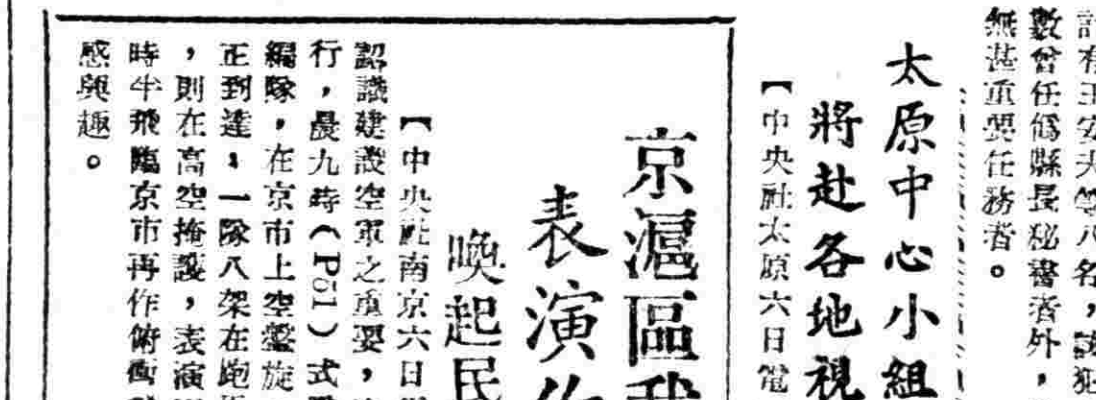 計有王安夫等八名，該犯
數曾任僞縣長秘書者外，
無甚重要任務者。
太原中心小組
將赴各地視
【中央社太原六日電
京滬區我
表演作
喚起民
【中央社南京六日
認識建設空軍之重要，
行，晨九時（P51）式
編隊，在京市上空盤旋
正到達；一隊八架在跑
，則在高空掩護，表演
時半飛臨京市再作俯衝
感興趣。